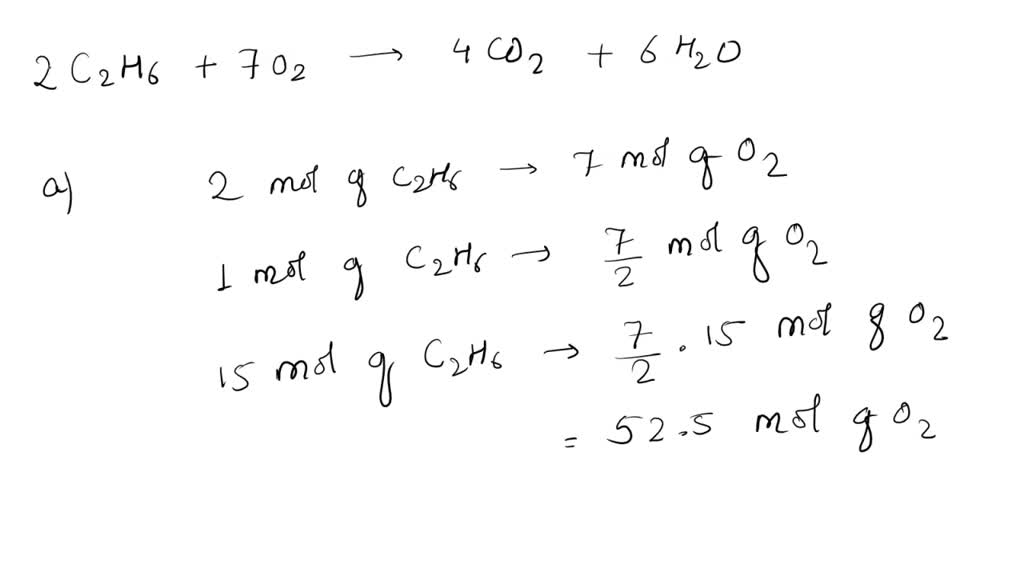 2 C₂H₆ + 7O₂ → 4 CO₂ + 6 H₂O
a) 2 mol of C₂H₆ → 7 mol of O₂
1 mol of C₂H₆ → 7/2 mol of O₂
15 mol of C₂H₆ → 7/2 . 15 mol of O₂
= 52.5 mol of O₂